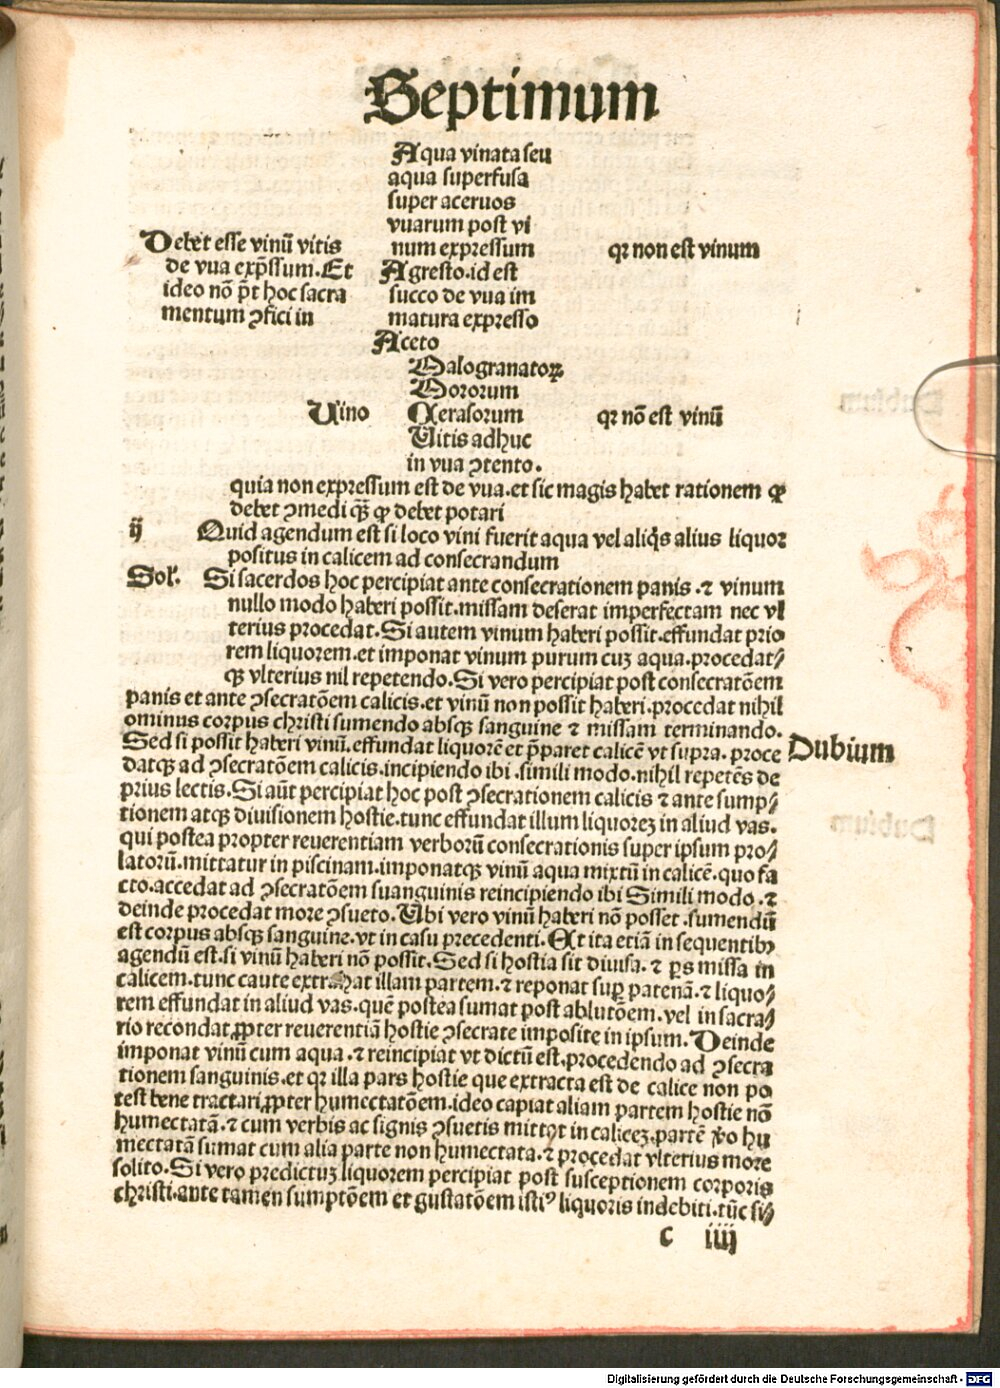 Septimum
Aqua vinata seu
aqua superfusa
super aceruos
vuarum post vi
num expressum
qꝛ non est vinum
Debet esse vinū vitis
de vua exp̄ssum. Et
ideo nō p̄t hoc sacra
mentum ꝯfici in
Agresto. id est
succo de vua im
matura expresso
Aceto
Malogranatoꝝ
Mororum
Vino
Cerasorum
qꝛ nō est vinū
Vitis adhuc
in vua ꝯtento.
quia non expressum est de vua. et sic magis habet rationem ꝙ
debet ꝯmedi qȝ̄ ꝙ debet potari
ij
Quid agendum est si loco vini fuerit aqua vel aliq̇s alius liquor
positus in calicem ad consecrandum
Sol'.
Si sacerdos hoc percipiat ante consecrationem panis. ⁊ vinum
nullo modo haberi possit. missam deserat imperfectam nec vl
terius procedat. Si autem vinum haberi possit. effundat prio
rem liquorem. et imponat vinum purum cuȝ aqua. procedat/
qȝ vlterius nil repetendo. Si vero percipiat post consecratōem
panis et ante ꝯsecratōem calicis. et vinū non possit haberi. procedat nihil
ominus corpus christi sumendo absqȝ sanguine ⁊ missam terminando.
Sed si possit haberi vinū. effundat liquorē et p̄paret calicē vt supra. proce
Dubium
datqȝ ad ꝯsecratōem calicis. incipiendo ibi. simili modo. nihil repetēs de
prius lectis. Si aūt percipiat hoc post ꝯsecrationem calicis ⁊ ante sump/
tionem atqȝ diuisionem hostie. tunc effundat illum liquoreȝ in aliud vas.
qui postea propter reuerentiam verborū consecrationis super ipsum pro/
latorū. mittatur in piscinam. imponatqȝ vinū aqua mixtū in calicē. quo fa
cto. accedat ad ꝯsecratōem suanguinis reincipiendo ibi Simili modo. ⁊
deinde procedat more ꝯsueto. Ubi vero vinū haberi nō posset. sumendū
est corpus absqȝ sanguine. vt in casu precedenti. Et ita etiā in sequentibꝰ
agendū est. si vinū haberi nō possit. Sed si hostia sit diuisa. ⁊ ꝑs missa in
calicem. tunc caute extrahat illam partem. ⁊ reponat suꝑ patenā. ⁊ liquo/
rem effundat in aliud vas. quē postea sumat post ablutōem. vel in sacra/
rio recondat ꝓpter reuerentiā hostie ꝯsecrate imposite in ipsum. Deinde
imponat vinū cum aqua. ⁊ reincipiat vt dictū est. procedendo ad ꝯsecra
tionem sanguinis. et qꝛ illa pars hostie que extracta est de calice non po
test bene tractari ꝓpter humectatōem. ideo capiat aliam partem hostie nō
humectatā. ⁊ cum verbis ac signis ꝯsuetis mittat in caliceȝ. partē v̊o hu
mectatā sumat cum alia parte non humectata. ⁊ procedat vlterius more
solito. Si vero predictuȝ liquorem percipiat post susceptionem corporis
christi. ante tamen sumptōem et gustatōem istiꝰ liquoris indebiti. tūc si/
c iiij
Digitalisierung gefördert durch die Deutsche Forschungsgemeinschaft - DFG